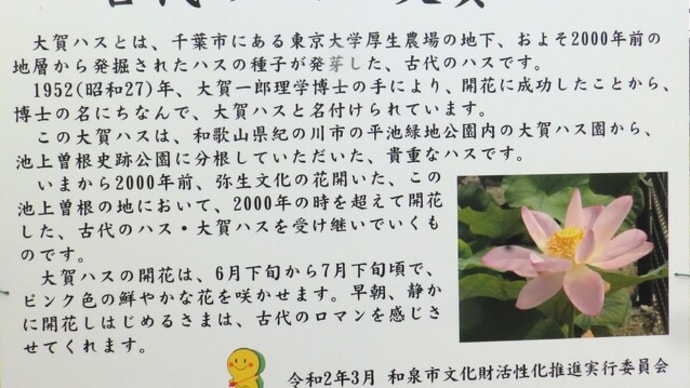 大賀ハスとは、千葉市にある東京大学厚生農場の地下、およそ2000年前の
地層から発掘されたハスの種子が発芽した、古代のハスです。
1952(昭和27)年、大賀一郎理学博士の手により、開花に成功したことから、
博士の名にちなんで、大賀ハスと名付けられています。
この大賀ハスは、和歌山県紀の川市の平池緑地公園内の大賀ハス園から、
池上曽根史跡公園に分根していただいた、貴重なハスです。
いまから2000年前、弥生文化の花開いた、この
池上曽根の地において、2000年の時を超えて開花
した、古代のハス・大賀ハスを受け継いでいくも
のです。
大賀ハスの開花は、6月下旬から7月下旬頃で、
ピンク色の鮮やかな花を咲かせます。早朝、静か
に開花しはじめるさまは、古代のロマンを感じさ
せてくれます。
令和2年3月 和泉市文化財活性化推進実行委員会